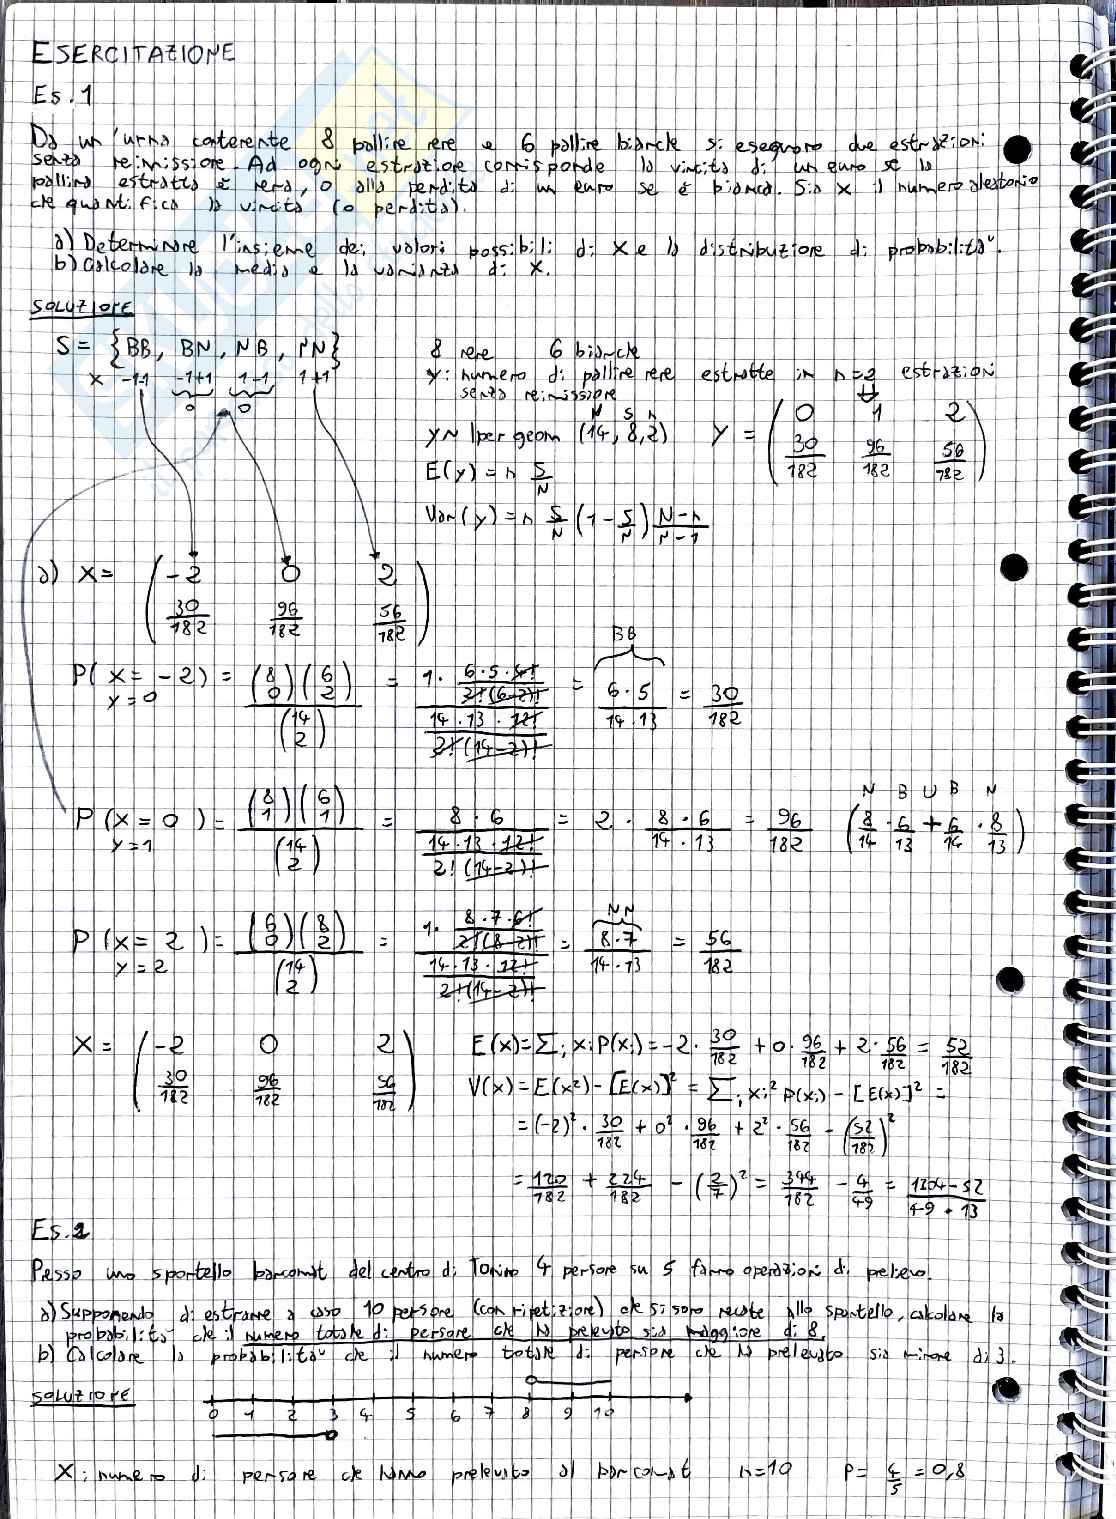 ESERCITAZIONE
Es. 1
Da un'urna contenente 8 palline nere e 6 palline bianche si eseguono due estrazioni
senza reimissione. Ad ogni estrazione corrisponde la vincita di un euro se la
pallina estratta è nera, o alla perdita di un euro se è bianca. Sia X il numero aleatorio
che quantifica la vincita (o perdita).
a) Determinare l'insieme dei valori possibili di X e la distribuzione di probabilità.
b) Calcolare la media e la varianza di X.
SOLUZIONE
S = {BB, BN, NB, NN}
X -1-1 -1+1 1-1 1+1
0 0
8 nere 6 bianche
Y: numero di palline nere estratte in n=2 estrazioni
senza reimissione
N S n
Y ~ Iper geom (14, 8, 2) Y = (0 1 2
30/182 96/182 56/182)
E(Y) = n S/N
Var(Y) = n S/N (1 - S/N) N-n/N-1
a) X = (-2 0 2
30/182 96/182 56/182)
BB
P(X = -2) = (8 0)(6 2)/(14 2) = 1 · 6·5·4!/2!(6-2)! / 14·13·12!/2!(14-2)! = 6·5/14·13 = 30/182
Y = 0
N B U B N
P(X = 0) = (8 1)(6 1)/(14 2) = 8·6 / 14·13·12!/2!(14-2)! = 2 · 8·6/14·13 = 96/182 (8/14 · 6/13 + 6/14 · 8/13)
Y = 1
NN
P(X = 2) = (6 0)(8 2)/(14 2) = 1 · 8·7·6!/2!(8-2)! / 14·13·12!/2!(14-2)! = 8·7/14·13 = 56/182
Y = 2
X = (-2 0 2
30/182 96/182 56/182)
E(X) = Σi xi P(xi) = -2 · 30/182 + 0 · 96/182 + 2 · 56/182 = 52/182
V(X) = E(X²) - [E(X)]² = Σi xi² P(xi) - [E(X)]² =
= (-2)² · 30/182 + 0² · 96/182 + 2² · 56/182 - (52/182)²
= 120/182 + 224/182 - (2/7)² = 344/182 - 4/49 = 1204-52/49·13
Es. 2
Presso uno sportello bancomat del centro di Torino 4 persone su 5 fanno operazioni di prelievo.
a) Supponendo di estrarre a caso 10 persone (con ripetizione) che si sono recate allo sportello, calcolare la
probabilità che il numero totale di persone che ha prelevato sia maggiore di 8.
b) Calcolare la probabilità che il numero totale di persone che ha prelevato sia minore di 3.
SOLUZIONE
0 1 2 3 4 5 6 7 8 9 10
X: numero di persone che hanno prelevato al bancomat n=10 P= 4/5 = 0,8